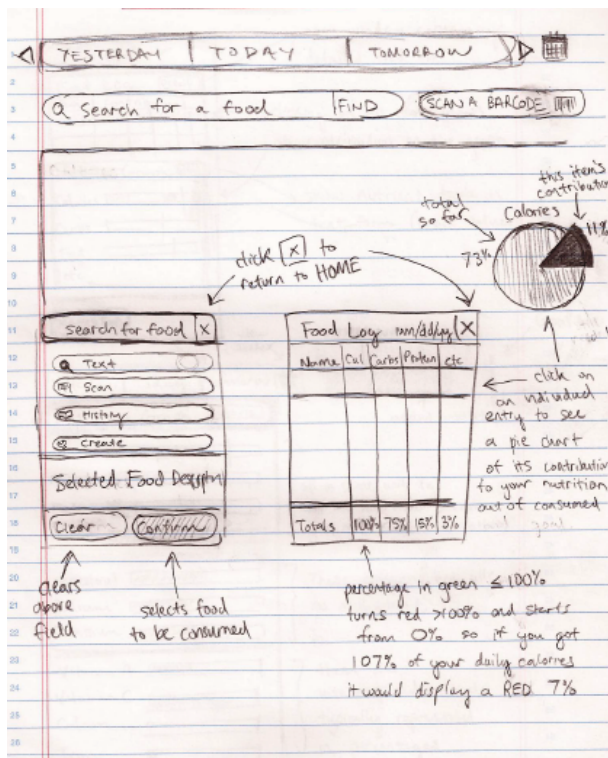 YESTERDAY | TODAY | TOMORROW
Search for a food FIND SCAN A BARCODE
this item's
contribution
total
so far
Calories
11%
73%
click [X] to
return to HOME
Search for food X
Text
Scan
History
Create
Selected Food Descriptn
Clear Confirm
clears
above
field
selects food
to be consumed
Food Log mm/dd/yy X
Name Cal Carbs Protein etc
Totals 100% 75% 15% 3%
click on
an individual
entry to see
a pie chart
of its contribution
to your nutrition
out of consumed
percentage in green ≤100%
turns red >100% and starts
from 0% so if you got
107% of your daily calories
it would display a RED 7%
2
3
4
5
6
7
8
9
10
11
12
13
14
15
16
17
18
19
20
21
22
23
24
25
26